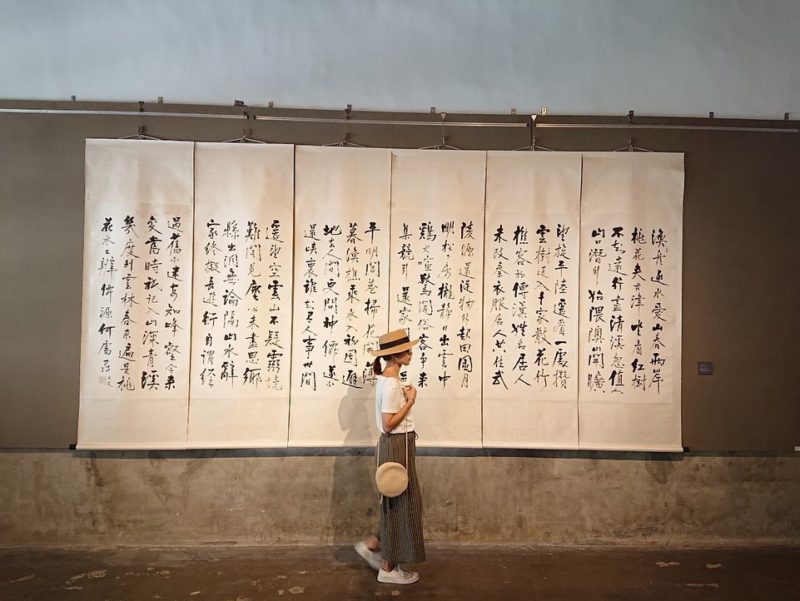 漁舟逐水愛山春兩岸
桃花夾去津坐看紅樹
不知遠行盡清溪忽值人
山口潛行始隈隩山開曠
望旋平陸遙看一處攢
雲樹近入千家散花竹
樵客初傳漢姓名居人
未改秦衣服居人共住武
陵源還從物外起田園月
明松下房櫳靜日出雲中
鷄犬喧驚聞俗客爭來
集競引還家
平明閭巷掃花開
暮漁樵乘水入初因避
地去人間更問神仙遂不
還峽裏誰知有人事世間
遙望空雲山不疑靈境
難聞見塵心未盡思鄉
縣出洞無論隔山水辭
家終擬長遊行自謂經
過舊不迷安知峰壑今來
變時祇記入山深青溪
幾度到雲林春來遍是桃
花水不辨仙源何處尋